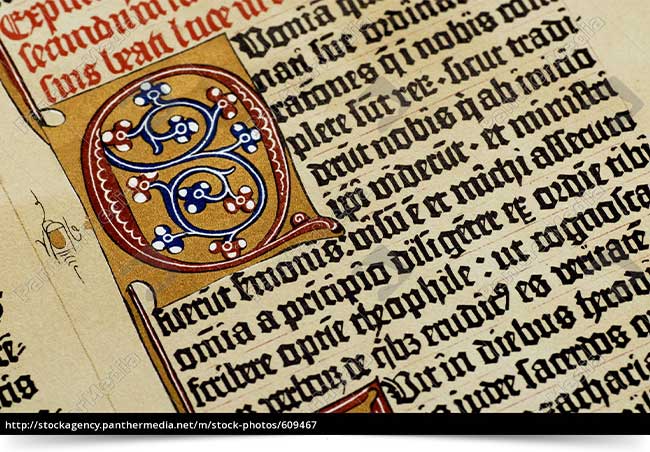 secundum lu
suis beati luce in
Uoniā qu
nati sūt ordinar
rationes q̄ i nobis com
plete sūt reꝝ · sicut tradi
derūt nobis q̄ ab inicio
ipi viderūt · et ministri
fuerūt sermonis: visū ē et michi assecuto
omīa a prīcipio diligēter ex ordīe tibi
scribere optīe theophile : ut cognosca
verboꝝ de qͥbz erudit⁹ es veritatē
Fuit in diebus herod
sacerdos
zachari
cis
PantherMedia
http://stockagency.panthermedia.net/m/stock-photos/609467